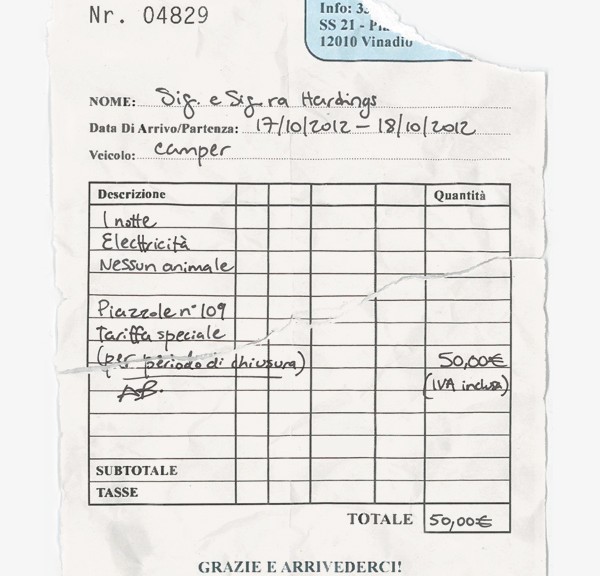 Nr. 04829
Info:
SS 21 -
12010 Vinadio
NOME: Sig. e Sig.ra Hardings
Data Di Arrivo/Partenza: 17/10/2012 – 18/10/2012
Veicolo: camper
Descrizione Quantità
1 notte
Electtricità
Nessun animale
Piazzole n° 109
tariffa speciale
(per periodo di chiusura) 50,00€
AB. (IVA inclusa)
SUBTOTALE
TASSE
TOTALE 50,00€
GRAZIE E ARRIVEDERCI!